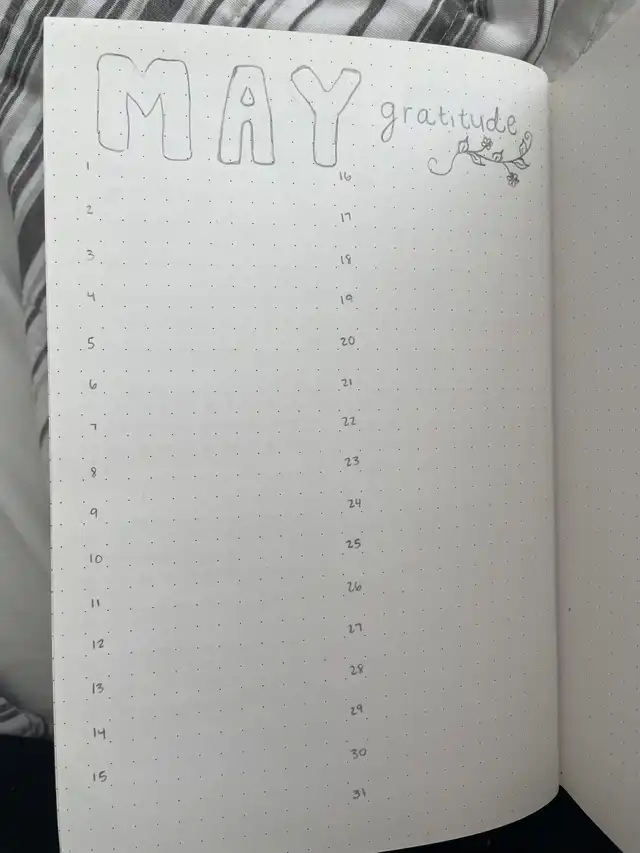 MAY gratitude
1
2
3
4
5
6
7
8
9
10
11
12
13
14
15
16
17
18
19
20
21
22
23
24
25
26
27
28
29
30
31